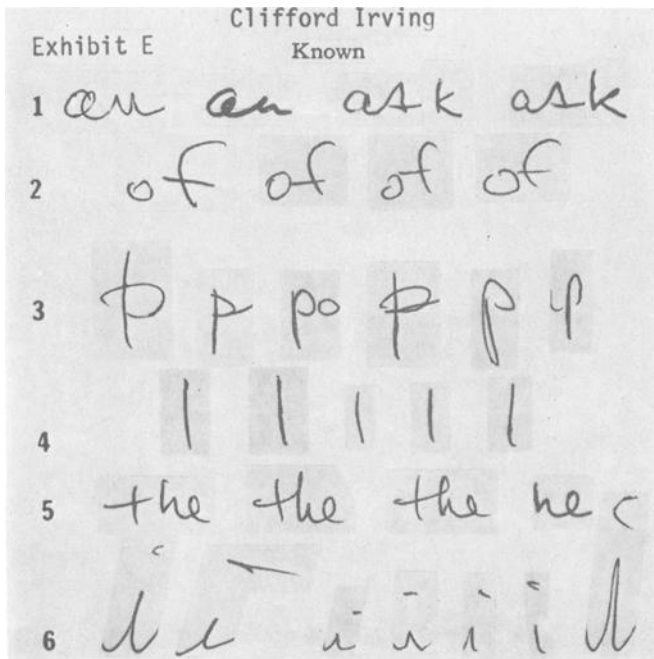 Clifford Irving
Exhibit E Known
1 an an ask ask
2 of of of of
3 p p po p p p
4 | | | | |
5 the the the he c
6 i i i i i i